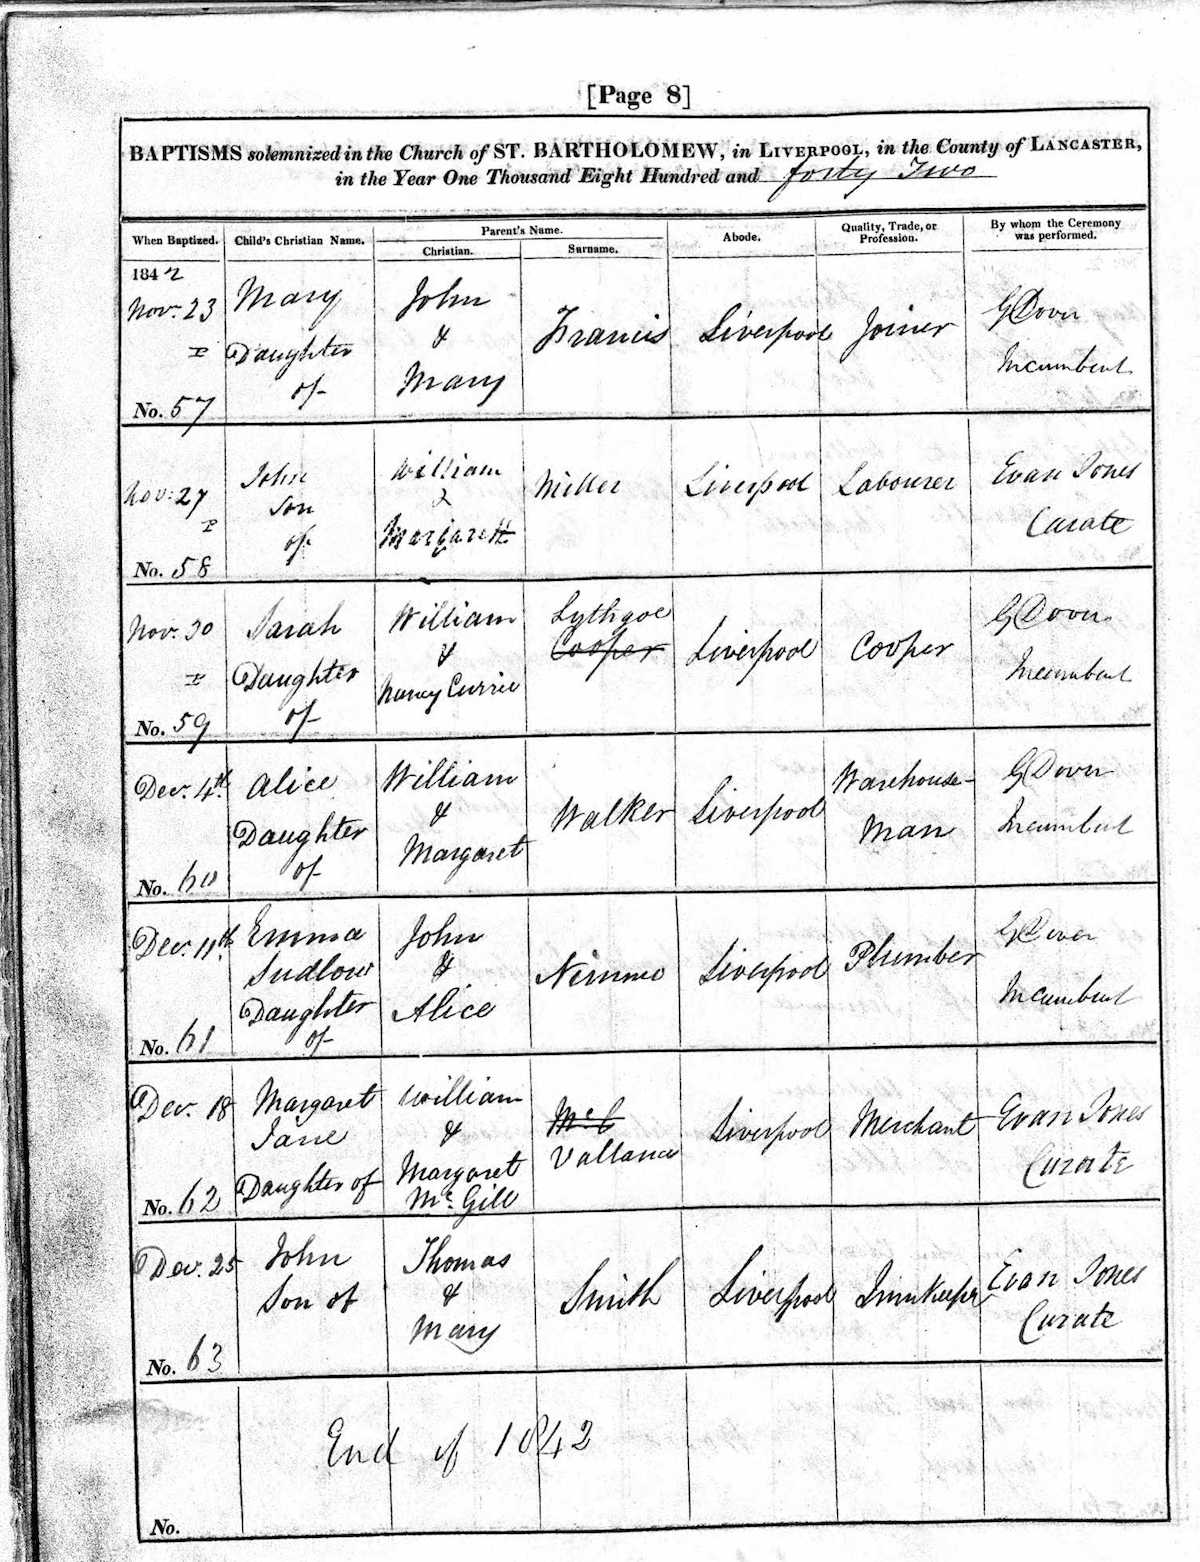 [Page 8]
BAPTISMS solemnized in the Church of ST. BARTHOLOMEW, in LIVERPOOL, in the County of LANCASTER,
in the Year One Thousand Eight Hundred and forty Two
When Baptized. Child's Christian Name. Parent's Name. Christian. Surname. Abode. Quality, Trade, or Profession. By whom the Ceremony was performed.
1842
Nov. 23
P
No. 57
Mary
Daughter
of
John
&
Mary
Francis
Liverpool
Joiner
G Dover
Incumbent
Nov. 27
P
No. 58
John
Son
of
William
&
Margarett
Miller
Liverpool
Labourer
Evan Jones
Curate
Nov. 30
P
No. 59
Sarah
Daughter
of
William
&
Nancy Currie
Lythgoe
Cooper
Liverpool
Cooper
G Dover
Incumbent
Dec. 4th
No. 60
Alice
Daughter
of
William
&
Margaret
Walker
Liverpool
Warehouse-
Man
G Dover
Incumbent
Dec. 11th
No. 61
Emma
Sudlow
Daughter
of
John
&
Alice
Nimmo
Liverpool
Plumber
G Dover
Incumbent
Dec. 18
No. 62
Margaret
Jane
Daughter of
William
&
Margaret
Mc. Gill
Mc. G
Vallance
Liverpool
Merchant
Evan Jones
Curate
Dec. 25
No. 63
John
Son of
Thomas
&
Mary
Smith
Liverpool
Innkeeper
Evan Jones
Curate
End of 1842
No.